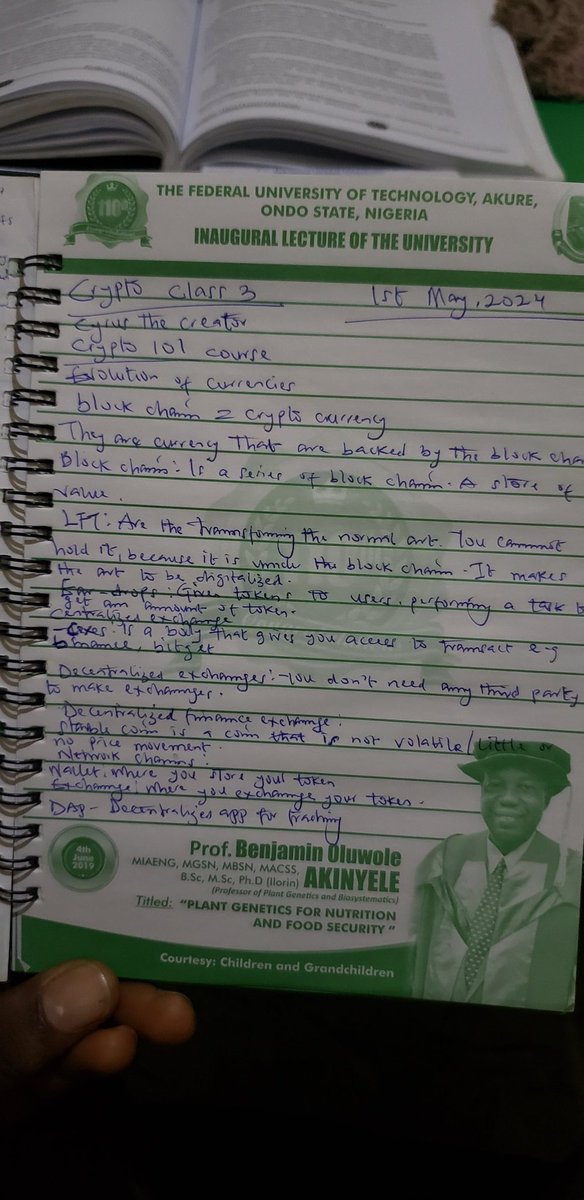 110th
THE FEDERAL UNIVERSITY OF TECHNOLOGY, AKURE,
ONDO STATE, NIGERIA
INAUGURAL LECTURE OF THE UNIVERSITY
Crypto Class 3 1st May, 2024
Cyrus the creator
Crypto 101 course
Evolution of currencies
block chain = crypto currency
They are currency that are backed by the block chain
Block chain: Is a series of block chain. A store of
value.
LFT: Are the transforming the normal art. You cannot
hold it, because it is unde the block chain. It makes
the art to be digitalized.
drops: Given tokens to users, performing a task to
get an amount of token.
Centralized exchange
-Cexes: Is a body that gives you access to transact e-g
binance, bitget
Decentralized exchanges:-You don't need any third party
to make exchanges.
Decentralized finance exchange.
Stable coin is a coin that is not volatile/little or
no price movement.
Network chains:
Wallet: where you store your token
Exchange: where you exchange your token.
DAP- Decentralizes app for tracking
4th
June
2019
Prof. Benjamin Oluwole
AKINYELE
MIAENG, MGSN, MBSN, MACSS,
B.Sc, M.Sc, Ph.D (Ilorin)
(Professor of Plant Genetics and Biosystematics)
Titled: "PLANT GENETICS FOR NUTRITION
AND FOOD SECURITY"
Courtesy: Children and Grandchildren